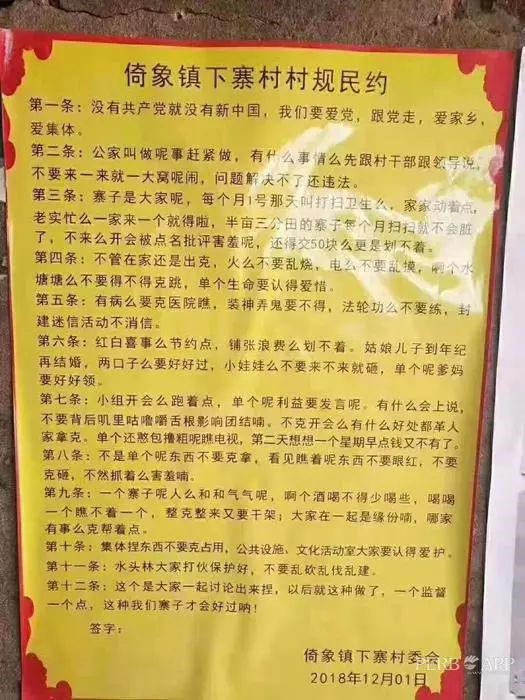 倚象镇下寨村村规民约
第一条：没有共产党就没有新中国，我们要爱党，跟党走，爱家乡，
爱集体。
第二条：公家叫做呢事赶紧做，有什么事情么先跟村干部跟领导说，
不要来一来就一大窝呢闹，问题解决不了还违法。
第三条：寨子是大家呢，每个月1号那天叫打扫卫生么，家家动着点，
老实忙么一家来一个就得啦，半亩三分田的寨子每个月扫扫就不会脏
了，不来么开会被点名批评害羞呢，还得交50块么更是划不着。
第四条：不管在家还是出克，火么不要乱烧，电么不要乱摸，啊个水
塘塘么不要得不得克跳，单个生命要认得爱惜。
第五条：有病么要克医院瞧，装神弄鬼要不得，法轮功么不要练，封
建迷信活动不消信。
第六条：红白喜事么节约点，铺张浪费么划不着。姑娘儿子到年纪
再结婚，两口子么要好好过，小娃娃么不要来不来就砸，单个呢爹妈
要好好领。
第七条：小组开会么跑着点，单个呢利益要发言呢。有什么会上说，
不要背后叽里咕噜嚼舌根影响团结喃。不克开会么有什么好处都革人
家拿克。单个还憨包撸粗呢瞧电视，第二天想想一个星期早点钱又不有了。
第八条：不是单个呢东西不要克拿，看见瞧着呢东西不要眼红，不要
克砸，不然抓着么害羞喃。
第九条：一个寨子呢人么和和气气呢，啊个酒喝不得少喝些，喝喝
一个瞧不着一个，整克整来又要干架；大家在一起是缘份喃，哪家
有事么克帮着点。
第十条：集体捏东西不要克占用，公共设施、文化活动室大家要认得爱护。
第十一条：水头林大家打伙保护好，不要乱砍乱伐乱建。
第十二条：这个是大家一起讨论出来捏，以后就这种做了，一个监督
一个点，这种我们寨子才会好过呐！
签字：
倚象镇下寨村委会
2018年12月01日